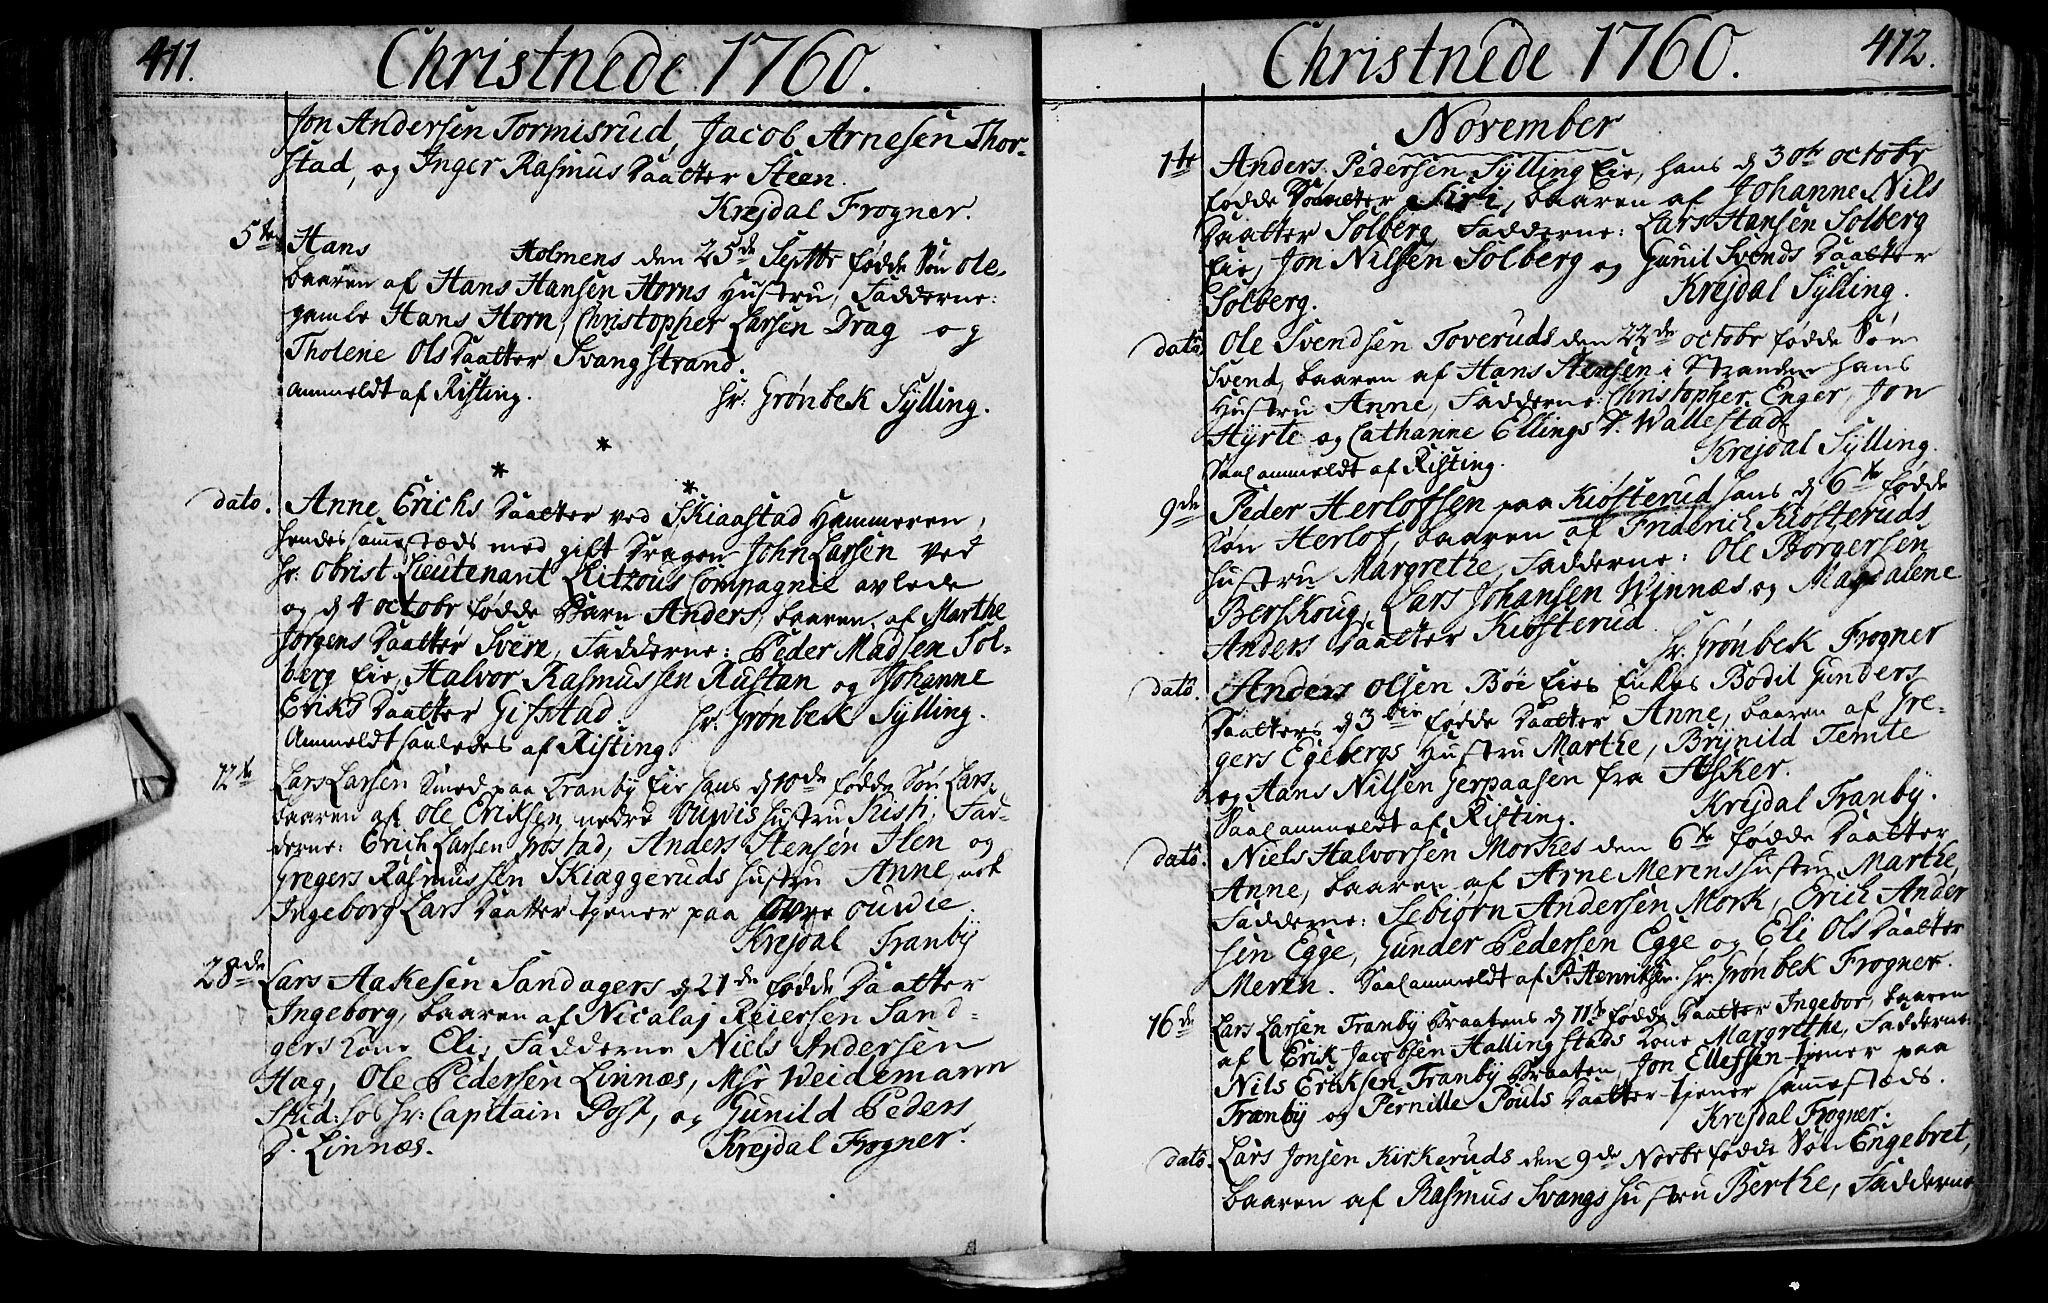 411.
Christnede 1760.
Jon Andersen Tormisrud, Jacob Arnesen Thor-
stad, og Inger Rasmus Daatter Steen.
Krejdal Frogner.
5te Hans Holmens den 25de Septbr fødde Søn Ole,
baaren af Hans Hansen Horns Hustru, Fadderne:
gamle Hans Horn, Christopher Larsen Drag og
Tholene Ols Daatter Svangstrand.
Anmeldt af Risting. Hr. Grönbek Sylling.
*
* *
dato. Anne Erichs Daatter ved Skiaastad Hammeren,
hendes sammestæds med gift Dragon John Larsen ved
Hr. Obrist Lieutenant Litzous Compagnie avlede
og d 4 octobr fødde Barn Anders, baaren af Marthe
Jörgens Daatter Svere, Fadderne: Peder Madsen Sol-
berg Eie, Halvor Rasmussen Rustan og Johanne
Eriks Daatter Gifstad. Hr. Grönbek Sylling.
Anmeldt saaledes af Risting
12te Lars Larsen Smed paa Tranby Eie hans d 10de fødde Søn Lars,
baaren af Ole Eriksen nedre Ouwis Hustru Kisti, Fad-
derne: Erich Larsen Grostad, Anders Stensen Ilen og
Gregers Rasmussen Skiæggeruds Hustru Anne, nok
Ingeborg Lars Daatter tjener paa øvre Ouwie.
Krejdal Tranby
28de Lars Aakesen Sandagers d 21de fødde Daatter
Ingeborg, baaren af Nicolaj Reiersen Sand-
gers Kone Eli, Fadderne Niels Andersen
Hag, Ole Pedersen Linnæs, Msr Weidemann
Stud: hos Hr: Capitain Post, og Gunild Peders
D. Linnæs. Krejdal Frogner.
412.
Christnede 1760.
November
1te Anders Pedersen Sylling Eie, hans d 30te octobr
fødde Daatter Siri, baaren af Johanne Nils
Daatter Solberg, Fadderne: Lars Hansen Solberg
Eie, Jon Nilsen Solberg og Gunil Svends Daatter
Solberg. Krejdal Sylling.
dato Ole Svendsen Toveruds den 22de octobr fødde Søn
Svend, baaren af Hans Stensen i Stranden hans
Hustru Anne, Fadderne: Christopher Enger, Jon
Hyrte og Cathrine Ellings D. Wallestad
Krejdal Sylling.
Saal anmeldt af Risting.
9de Peder Herlofsen paa Kiøsterud hans d 6te fødde
Søn Herlof, baaren af Friderich Kiøsteruds
Hustru Margrethe, Fadderne: Ole Borgersen
Berskoug, Lars Johansen Winnæs og Magdalene
Anders Daatter Kiøsterud
Hr. Grönbek Frogner
dato. Anders Olsen Böe Eies Enkes Bodil Gunders
Daatters d 3die fødde Daatter Anne, baaren af Gre-
gers Egebergs Hustru Marthe, Brynild Temte
og Hans Nilsen Gerpaasen fra Asker.
Krejdal Tranby.
Saal anmeldt af Risting.
dato. Niels Halvorsen Morkes den 6te fødde Daatter
Anne, baaren af Arne Merens Hustru Marthe,
Fadderne: Sebjörn Andersen Mork, Erich Ander
sen Egge, Gunder Pedersen Egge og Eli Ols Daatter
Meren. Saal anmeldt af P. Henriksen. Hr: Grönbek Frogner.
16de Lars Larsen Tranby Braatens d 11te fødde Daatter Ingebor, baaren
af Erik Jacobsen Hallingstads Kone Margrethe, Fadderne:
Nils Eriksen Tranby Braaten, Jon Ellefsen tjener paa
Tranby og Pernille Pouls Daatter tjener sammestæds.
Krejdal Frogner.
dato. Lars Jonsen Kirkeruds den 9de Novbr fødde Søn Engebret,
baaren af Rasmus Svangs Hustru Berthe, Fadderne